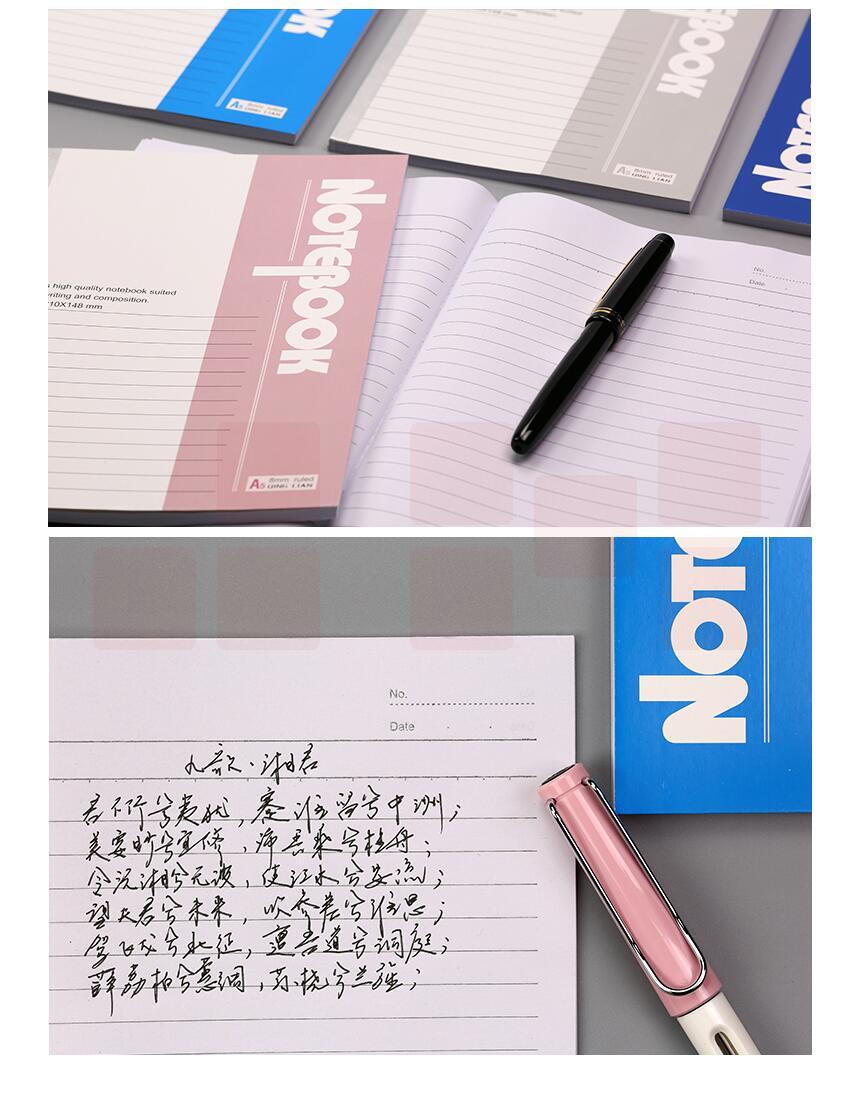 OK
A5 8mm ruled
QING LIAN
EBOOK
A5 8mm ruled
QING LIAN
NOTE
NOTEBOOK
high quality notebook suited
writing and composition.
210X148 mm
A5 8mm ruled
QING LIAN
No.
Date
NOTE
No.
Date
九歌·湘君
君不行兮夷犹，蹇谁留兮中洲；
美要眇兮宜修，沛吾乘兮桂舟；
令沅湘兮无波，使江水兮安流；
望夫君兮未来，吹参差兮谁思；
驾飞龙兮北征，邅吾道兮洞庭；
薜荔柏兮蕙绸，荪桡兮兰旌；